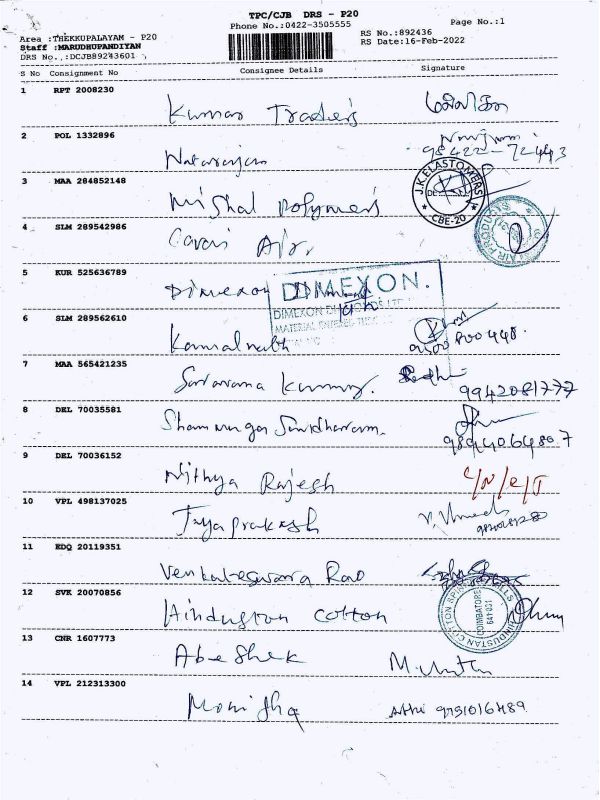 TPC/CJB DRS - P20
Phone No.:0422-3505555
Page No.:1
Area :THEKKUPALAYAM - P20
RS No.:892436
Staff :MARUDHUPANDIYAN
RS Date:16-Feb-2022
DRS No.:DCJB89243601
S No Consignment No Consignee Details Signature
1 RPT 2008230
Kumar Traders
2 POL 1332896
98422-72443
Natarajan
3 MAA 284852148
J.K.ELASTOMERS
CBE-20
Mishal Polymers
4 SLM 289542986
AIR PRODUCTS
Air
5 KUR 525636789
Dimexon
DIMEXON.
6 SLM 289562610
Kamalnath
7 MAA 565421235
Saravana Kumar.
9942081777
8 DEL 70035581
Shanmuga Sundharam.
9894064807
9 DEL 70036152
Nithya Rajesh
10 VPL 498137025
Jayaprakash
11 EDQ 20119351
Venkateswara Rao
12 SVK 20070856
HINDUSTAN COTTON SPINNING MILLS
COIMBATORE
641 031
Hindustan Cotton
13 CNR 1607773
Abeshek
14 VPL 212313300
Monisha
9751016489